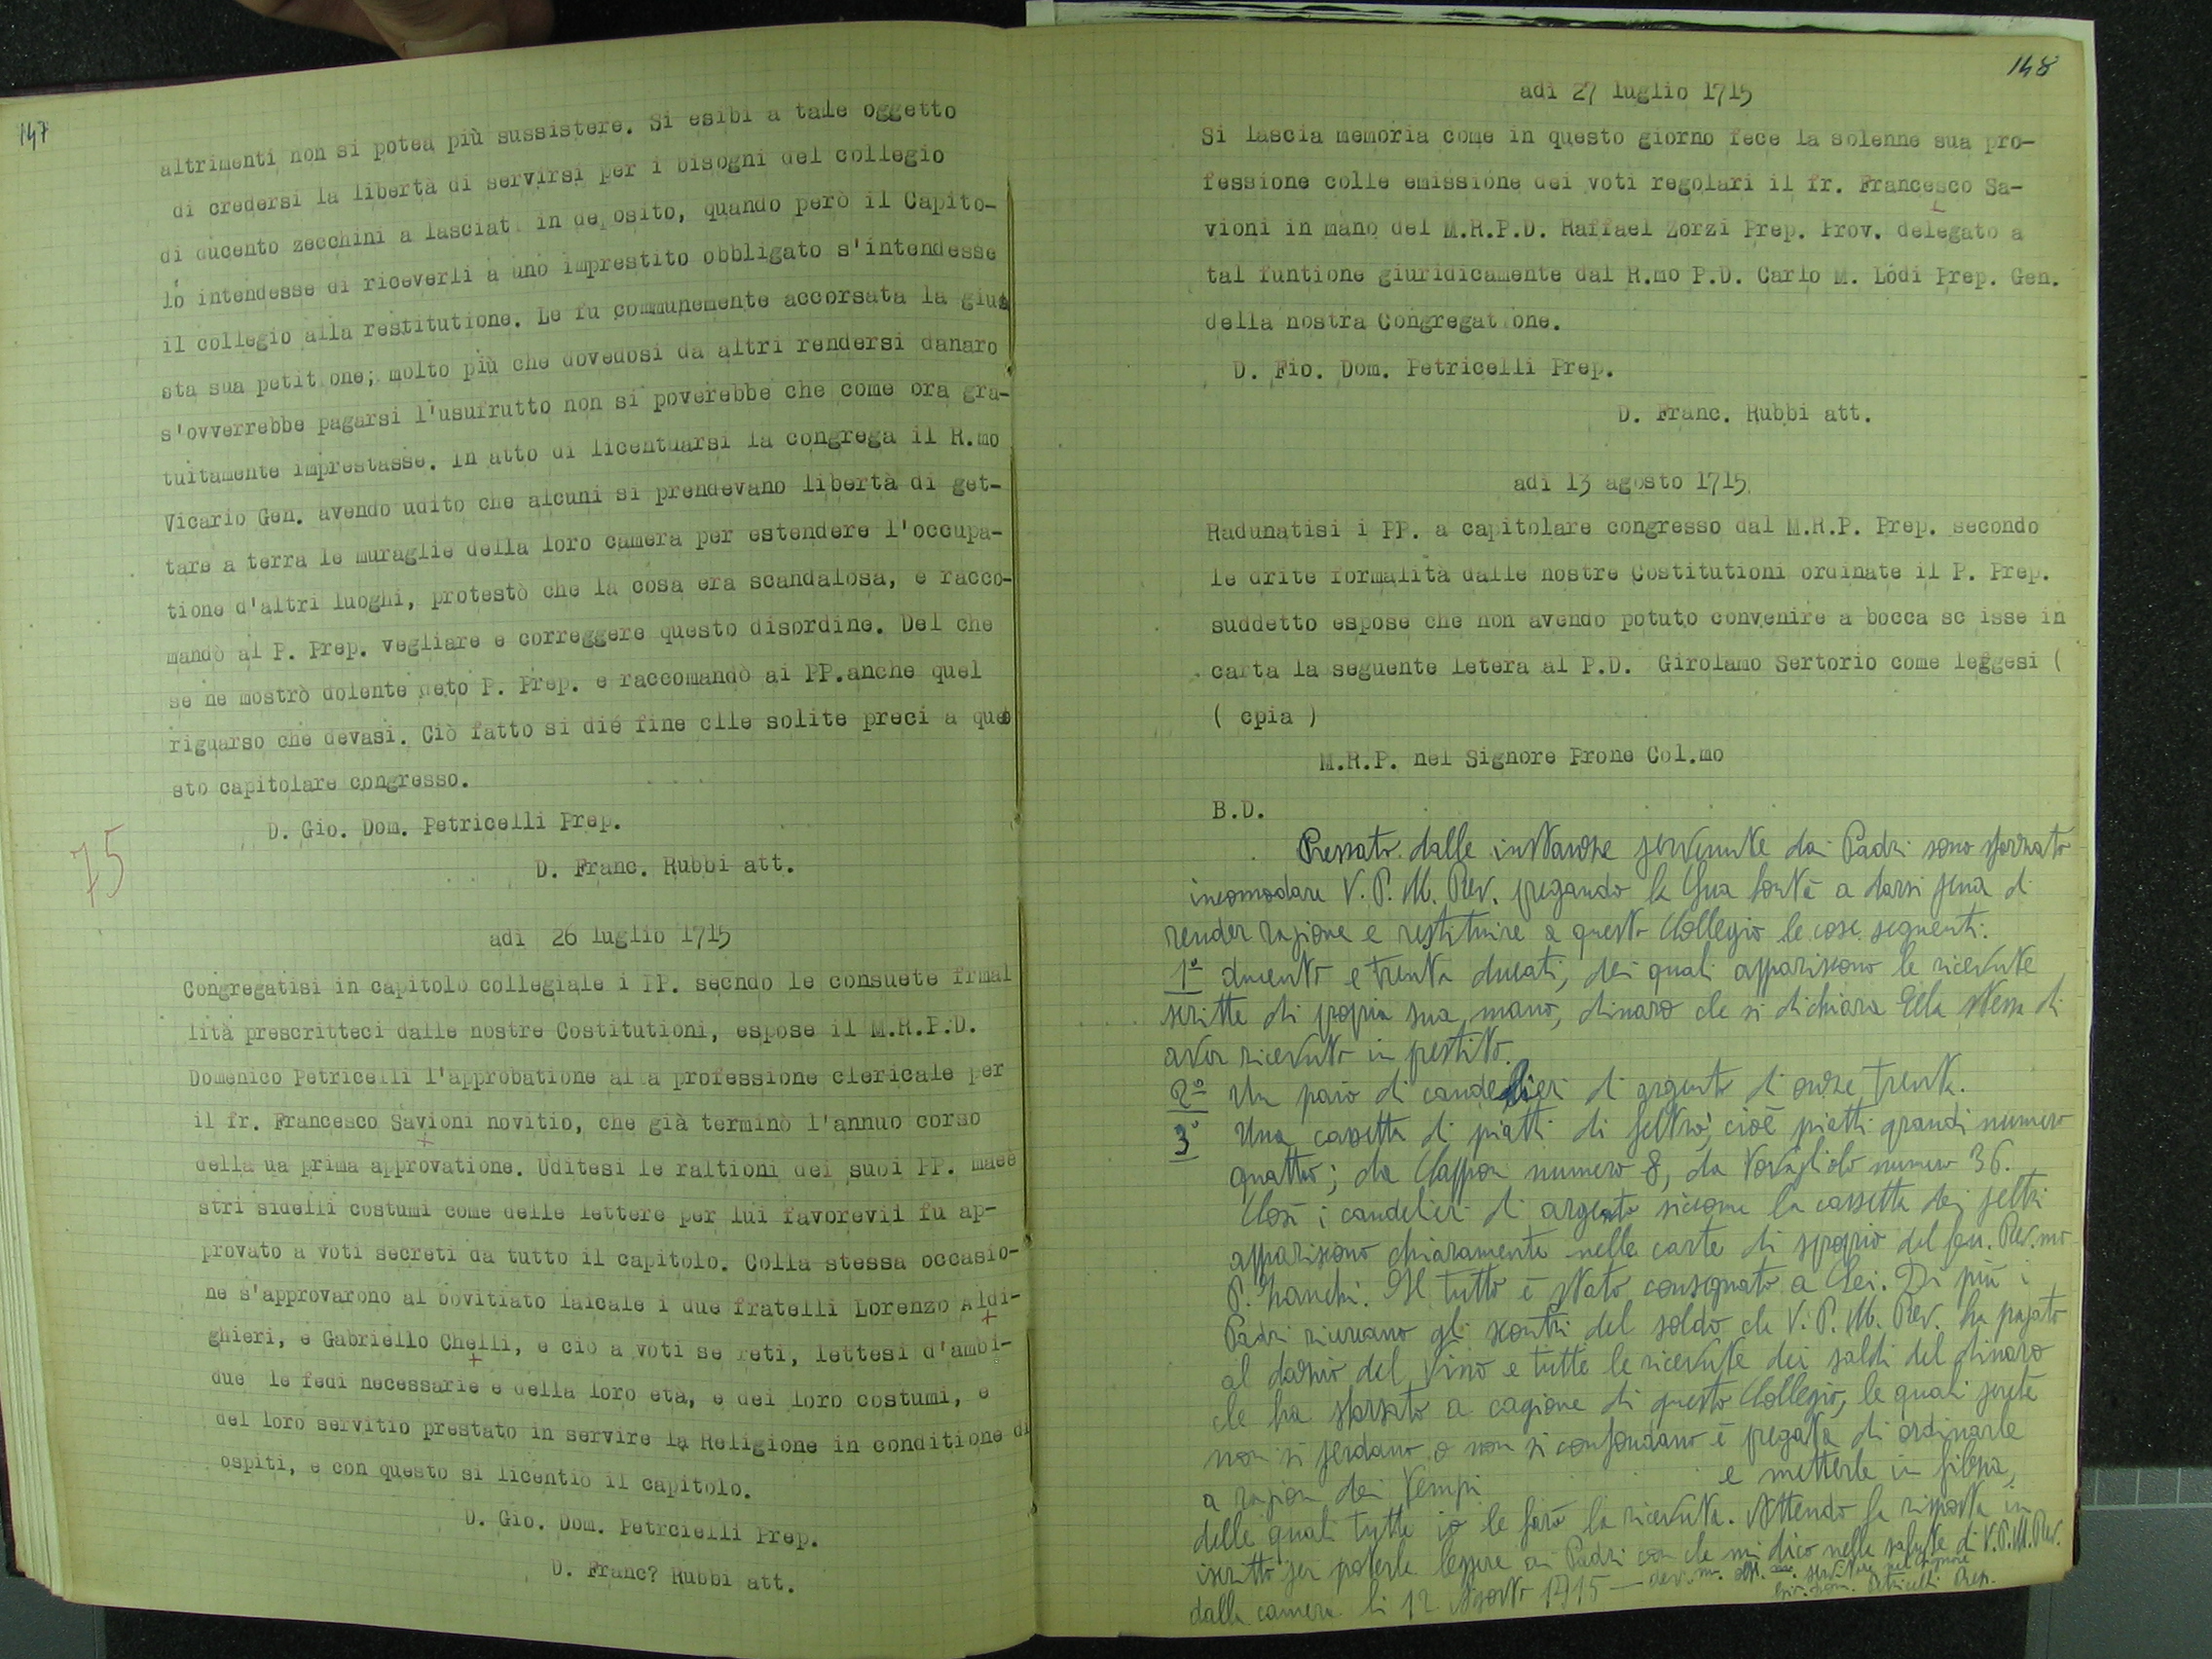 147
altrimenti non si potea più sussistere. Si esibì a tale oggetto
di credersi la libertà di servirsi per i bisogni del collegio
di ducento zecchini a lasciati in deposito, quando però il Capito-
lo intendesse di riceverli a uno imprestito obbligato s'intendesse
il collegio alla restitutione. Le fu communemente accorsata la giu
sta sua petit one; molto più che dovedosi da altri rendersi danaro
s'ovverrebbe pagarsi l'usufrutto non si poverebbe che come ora gra-
tuitamente imprestasse. In atto di licentuarsi la congrega il R.mo
Vicario Gen. avendo udito che alcuni si prendevano libertà di get-
tare a terra le muraglie della loro camera per estendere l'occupa-
tione d'altri luoghi, protestò che la cosa era scandalosa, e racco-
mandò al P. Prep. vegliare e correggere questo disordine. Del che
se ne mostrò dolente deto P. Prep. e raccomandò ai PP.anche quel
riguarso che devasi. Ciò fatto si dié fine clle solite preci a que
sto capitolare congresso.
D. Gio. Dom. Petricelli Prep.
D. Franc. Rubbi att.
75
adì 26 luglio 1715
Congregatisi in capitolo collegiale i PP. secndo le consuete frmal
lità prescritteci dalle nostre Costitutioni, espose il M.R.P.D.
Domenico Petricelli l'approbatione alla professione clericale per
il fr. Francesco Savioni novitio, che già terminò l'annuo corso
della ua prima approvatione. Uditesi le raltioni dei suoi PP. maee
stri sidelli costumi come delle lettere per lui favorevil fu ap-
provato a voti secreti da tutto il capitolo. Colla stessa occasio-
ne s'approvarono al bovitiato laicale i due fratelli Lorenzo Aldi-
ghieri, e Gabriello Chelli, e ciò a voti se reti, lettesi d'ambi-
due le fedi necessarie e della loro età, e dei loro costumi, e
del loro servitio prestato in servire la Religione in conditione di
ospiti, e con questo si licentiò il capitolo.
D. Gio. Dom. Petrcielli Prep.
D. Franc? Rubbi att.
148
adì 27 luglio 1715
Si lascia memoria come in questo giorno fece la solenne sua pro-
fessione colle emissione dei voti regolari il fr. Francesco Sa-
vioni in mano del M.R.P.D. Raffael Zorzi Prep. Prov. delegato a
tal funtione giuridicamente dal R.mo P.D. Carlo M. Lodi Prep. Gen.
della nostra Congregat one.
D. Fio. Dom. Petricelli Prep.
D. Franc. Rubbi att.
adì 13 agosto 1715
Radunatisi i PP. a capitolare congresso dal M.R.P. Prep. secondo
le drite formalità dalle nostre Costitutioni ordinate il P. Prep.
suddetto espose che non avendo potuto convenire a bocca sc isse in
carta la seguente letera al P.D. Girolamo Sertorio come leggesi (
( cpia )
M.R.P. nel Signore Prone Col.mo
B.D.
Pressato dalle instanze pervenute dai Padri sono sforzato
incomodare V. P. M. Rev. pregando la Sua bontà a darsi pena di
render ragione e restituire a questo Collegio le cose seguenti:
1° ducento e trenta ducati, dei quali appariscono le ricevute
scritte di propria sua mano, dinaro che si dichiara Ella stessa di
aver ricevuto in prestito.
2° Un paio di candelieri di argento di onze trenta.
3° Una cassetta di piatti di peltro, cioè piatti grandi numero
quattro; da Cappon numero 8, da tovagliolo numero 36.
Così i candelieri di argento siccome la cassetta dei peltri
appariscono chiaramente nelle carte di spoprio del fu. Rev.mo
P. Zanchi. Il tutto è stato consegnato a Lei. Di più i
Padri ricercano gli scontri del soldo che V. P. M. Rev. ha pagato
al dazio del vino e tutte le ricevute dei saldi del dinaro
che ha sborsato a cagione di questo Collegio, le quali perché
non si perdano o non si confondano è pregata di ordinarle
a ragion dei tempi e metterle in filza,
delle quali tutte io le farò la ricevuta. Attendo la risposta in
iscritto per poterla leggere ai Padri con che mi dico nelle salute di V.P.M.Rev.
dalla camera li 12 Agosto 1715 — dev.mo obl. servitore nel Signore
Gio. Dom. Petricelli Prep.